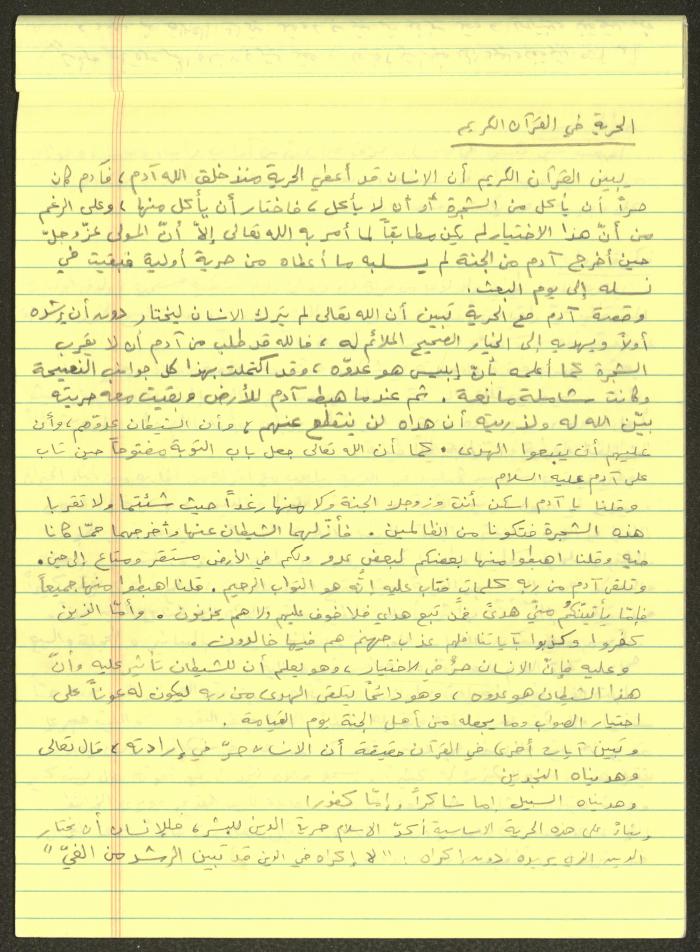 الحرية في القرآن الكريم
يبين القرآن الكريم أن الانسان قد أعطي الحرية منذ خلق الله آدم، فآدم كان
حراً أن يأكل من الشجرة أو أن لا يأكل، فاختار أن يأكل منها، وعلى الرغم
من أنّ هذا الاختيار لم يكن مطابقاً لما أمر به الله تعالى إلاّ أنّ المولى عزّ وجلّ
حين أخرج آدم من الجنة لم يسلبه ما أعطاه من حرية أولية فبقيت في
نسله إلى يوم البعث.
وقصة آدم مع الحرية تبين أن الله تعالى لم يترك الانسان ليختار دون أن يرشده
أولاً ويهديه إلى الخيار الصحيح الملائم له، فالله قد طلب من آدم أن لا يقرب
الشجرة كما أعلمه بأنّ إبليس هو عدوّه، وقد اكتملت بهذا كل جوانب النصيحة
وكانت شاملة مانعة. ثم عندما هبط آدم للأرض وبقيت معه حريته
بيّن الله له ولذريته أن هداه لن ينقطع عنهم، وأن الشيطان عدوّهم، وأن
عليهم أن يتبعوا الهدى. كما أن الله تعالى جعل باب التوبة مفتوحاً حين تاب
على آدم عليه السلام
وقلنا يا آدم اسكن أنت وزوجك الجنة وكلا منها رغداً حيث شئتما ولا تقربا
هذه الشجرة فتكونا من الظالمين. فأزلّهما الشيطان عنها وأخرجهما ممّا كانا
فيه وقلنا اهبطوا منها بعضكم لبعض عدو ولكم في الأرض مستقر ومتاع إلى حين.
وتلقى آدم من ربه كلمات فتاب عليه إنّه هو التواب الرحيم. قلنا اهبطوا منها جميعاً
فإمّا يأتينّكم منّي هدىً فمن تبع هداي فلا خوف عليهم ولا هم يحزنون. وأمّا الذين
كفروا وكذبوا بآياتنا فلهم عذاب جهنم هم فيها خالدون.
وعليه فإنّ الانسان حرٌّ في الاختيار، وهو يعلم أن للشيطان تأثير عليه وأنّ
هذا الشيطان هو عدوه، وهو دائماً يتلقى الهدى من ربه ليكون له عوناً على
اختيار الصواب وما يجعله من أهل الجنة يوم القيامة.
وتبين آيات أخرى في القرآن حقيقة أن الانسان حرّ في إرادته، قال تعالى
وهديناه النجدين
وهديناه السبيل إما شاكراً وإمّا كفورا
وبناءً على هذه الحرية الأساسية أكدّ الاسلام حرية الدين للبشر، فللإنسان أن يختار
الدين الذي يريده دون إكراه: "لا إكراه في الدين قد تبين الرشد من الغيّ"